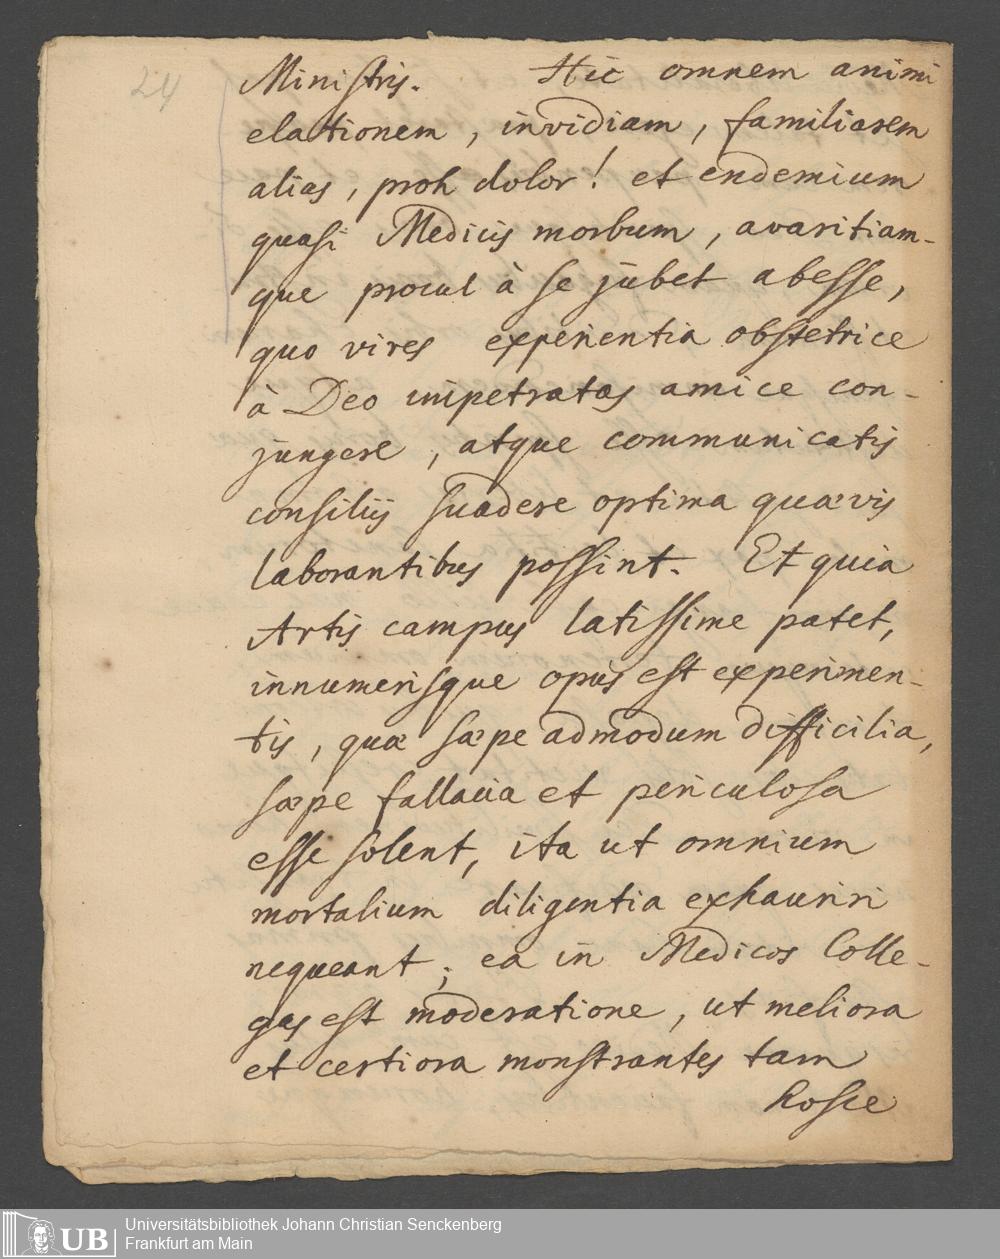 24
Ministris. Hic omnem animi
elationem, invidiam, familiarem
alias, proh dolor! et endemium
quasi Medicis morbum, avaritiam-
que procul à se jubet abesse,
quo vires experientia obstetrice
à Deo impetratas amice con-
jungere, atque communicatis
consiliis suadere optima quævis
laborantibus possint. Et quia
Artis campus latissime patet,
innumerisque opus est experimen-
tis, quæ sæpe admodum difficilia,
sæpe fallacia et periculosa
esse solent, ita ut omnium
mortalium diligentia exhauriri
nequeant; ea in Medicos Colle-
gas est moderatione, ut meliora
et certiora monstrantes tam
hosce
UB
Universitätsbibliothek Johann Christian Senckenberg
Frankfurt am Main